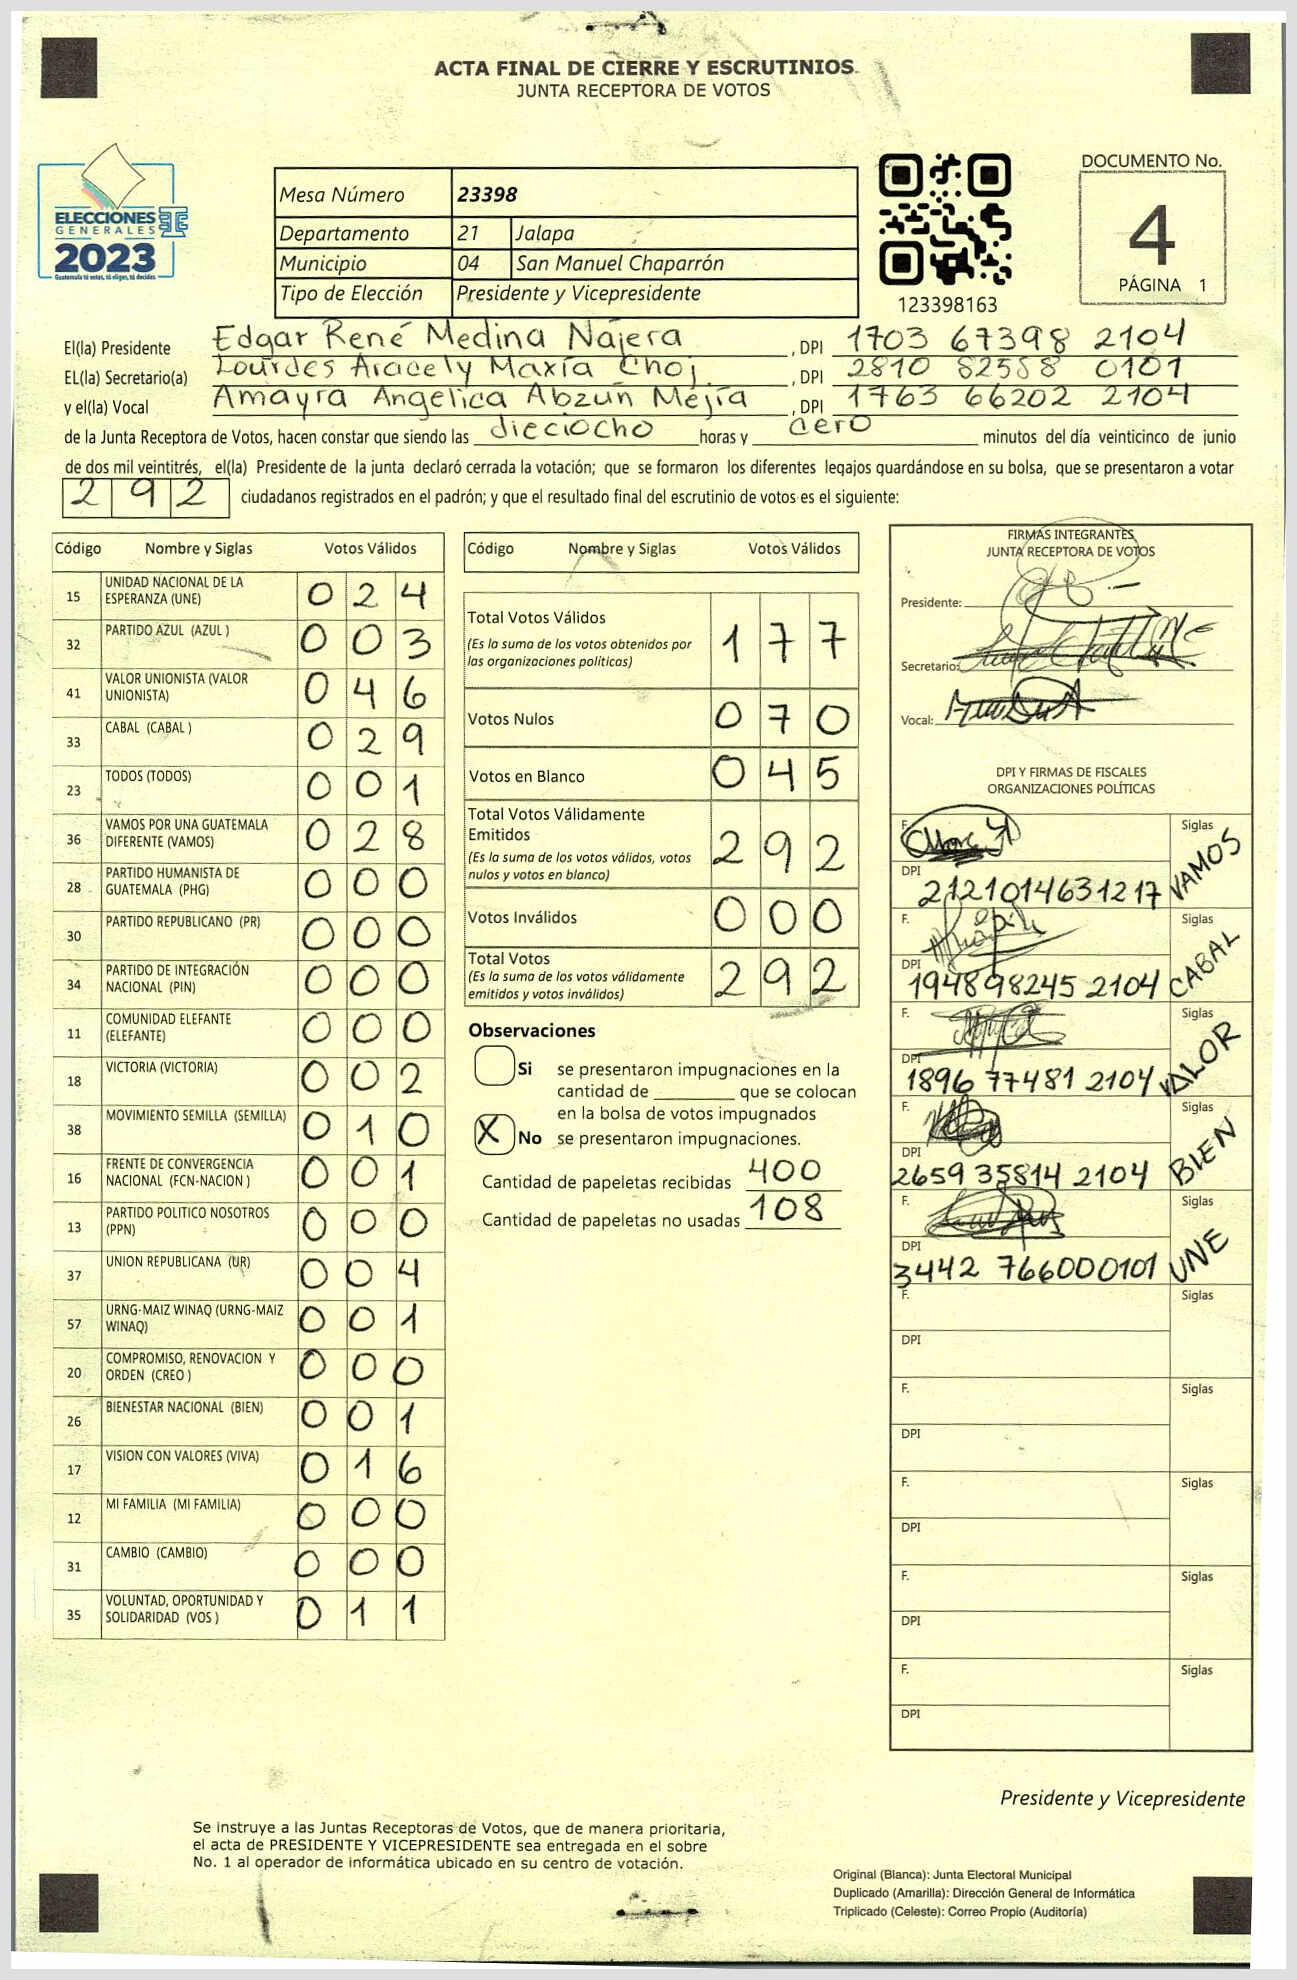 ACTA FINAL DE CIERRE Y ESCRUTINIOS
JUNTA RECEPTORA DE VOTOS
ELECCIONES
GENERALES
2023
Guatemala tú votas, tú eliges, tú decides
Mesa Número 23398
Departamento 21 Jalapa
Municipio 04 San Manuel Chaparrón
Tipo de Elección Presidente y Vicepresidente
123398163
DOCUMENTO No.
4
PÁGINA 1
El(la) Presidente Edgar René Medina Nájera , DPI 1703 67398 2104
EL(la) Secretario(a) Lourdes Aracely Maxía Choj , DPI 2810 82558 0101
y el(la) Vocal Amayra Angelica Abzun Mejía , DPI 1763 66202 2104
de la Junta Receptora de Votos, hacen constar que siendo las dieciocho horas y cero minutos del día veinticinco de junio
de dos mil veintitrés, el(la) Presidente de la junta declaró cerrada la votación; que se formaron los diferentes legajos guardándose en su bolsa, que se presentaron a votar
292 ciudadanos registrados en el padrón; y que el resultado final del escrutinio de votos es el siguiente:
Código Nombre y Siglas Votos Válidos
15 UNIDAD NACIONAL DE LA ESPERANZA (UNE) 024
32 PARTIDO AZUL (AZUL ) 003
41 VALOR UNIONISTA (VALOR UNIONISTA) 046
33 CABAL (CABAL ) 029
23 TODOS (TODOS) 001
36 VAMOS POR UNA GUATEMALA DIFERENTE (VAMOS) 028
28 PARTIDO HUMANISTA DE GUATEMALA (PHG) 000
30 PARTIDO REPUBLICANO (PR) 000
34 PARTIDO DE INTEGRACIÓN NACIONAL (PIN) 000
11 COMUNIDAD ELEFANTE (ELEFANTE) 000
18 VICTORIA (VICTORIA) 002
38 MOVIMIENTO SEMILLA (SEMILLA) 010
16 FRENTE DE CONVERGENCIA NACIONAL (FCN-NACION ) 001
13 PARTIDO POLITICO NOSOTROS (PPN) 000
37 UNION REPUBLICANA (UR) 004
57 URNG-MAIZ WINAQ (URNG-MAIZ WINAQ) 001
20 COMPROMISO, RENOVACION Y ORDEN (CREO ) 000
26 BIENESTAR NACIONAL (BIEN) 001
17 VISION CON VALORES (VIVA) 016
12 MI FAMILIA (MI FAMILIA) 000
31 CAMBIO (CAMBIO) 000
35 VOLUNTAD, OPORTUNIDAD Y SOLIDARIDAD (VOS ) 011
Código Nombre y Siglas Votos Válidos
Total Votos Válidos 177
(Es la suma de los votos obtenidos por
las organizaciones políticas)
Votos Nulos 070
Votos en Blanco 045
Total Votos Válidamente
Emitidos 292
(Es la suma de los votos válidos, votos
nulos y votos en blanco)
Votos Inválidos 000
Total Votos 292
(Es la suma de los votos válidamente
emitidos y votos inválidos)
Observaciones
Si se presentaron impugnaciones en la
cantidad de ________ que se colocan
en la bolsa de votos impugnados
X No se presentaron impugnaciones.
Cantidad de papeletas recibidas 400
Cantidad de papeletas no usadas 108
FIRMAS INTEGRANTES
JUNTA RECEPTORA DE VOTOS
Presidente:
Secretario:
Vocal:
DPI Y FIRMAS DE FISCALES
ORGANIZACIONES POLÍTICAS
F. Siglas VAMOS
DPI 2121014631217
F. Siglas CABAL
DPI 194898245 2104
F. Siglas VALOR
DPI 1896 77481 2104
F. Siglas BIEN
DPI 2659 35814 2104
F. Siglas UNE
DPI 3442 766000101
F. Siglas
DPI
F. Siglas
DPI
F. Siglas
DPI
F. Siglas
DPI
F. Siglas
DPI
Presidente y Vicepresidente
Se instruye a las Juntas Receptoras de Votos, que de manera prioritaria,
el acta de PRESIDENTE Y VICEPRESIDENTE sea entregada en el sobre
No. 1 al operador de informática ubicado en su centro de votación.
Original (Blanca): Junta Electoral Municipal
Duplicado (Amarilla): Dirección General de Informática
Triplicado (Celeste): Correo Propio (Auditoría)